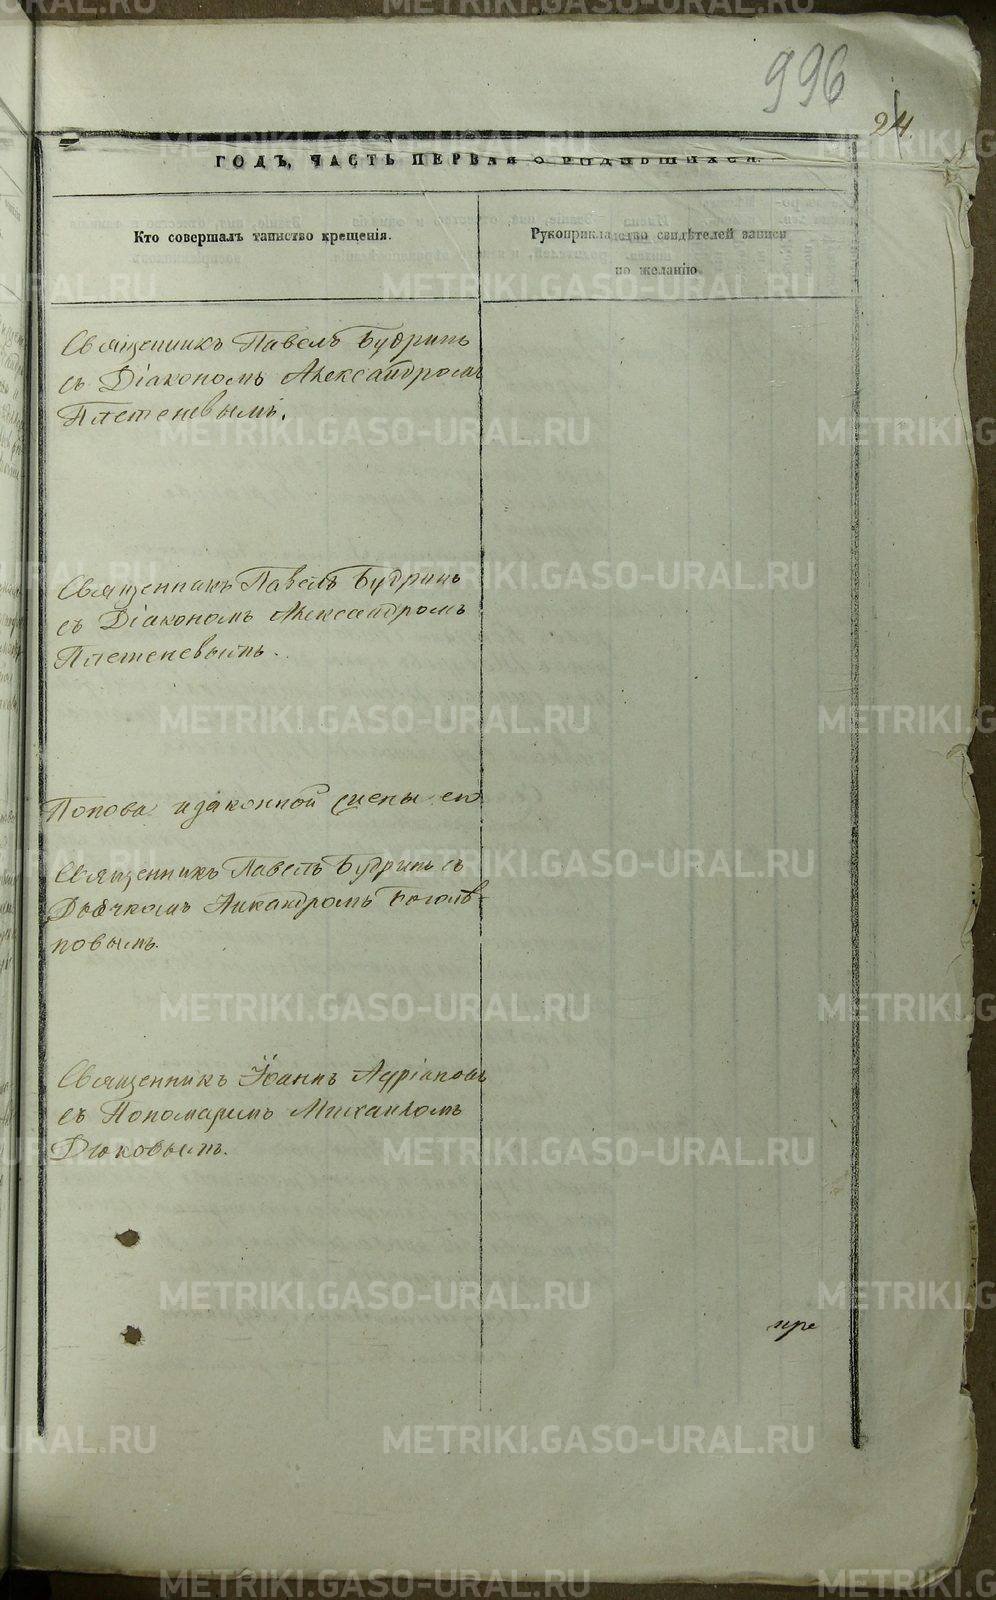 996
24.
ГОДЪ, ЧАСТЬ ПЕРВАЯ О РОДИВШИХСЯ.
Кто совершалъ таинство крещенія.
Рукоприкладство свидѣтелей записи
по желанію
Священникъ Павелъ Будринъ
съ Діакономъ Александромъ
Плетеневымъ.
Священникъ Павелъ Будринъ
съ Діакономъ Александромъ
Плетеневымъ.
Попова и законной жены его
Священникъ Павелъ Будринъ съ
Дьячкомъ Никандромъ
повымъ.
Священникъ Іоаннъ Адріановъ
съ Пономаремъ Михаиломъ
Дюковымъ.
пре
METRIKI.GASO-URAL.RU